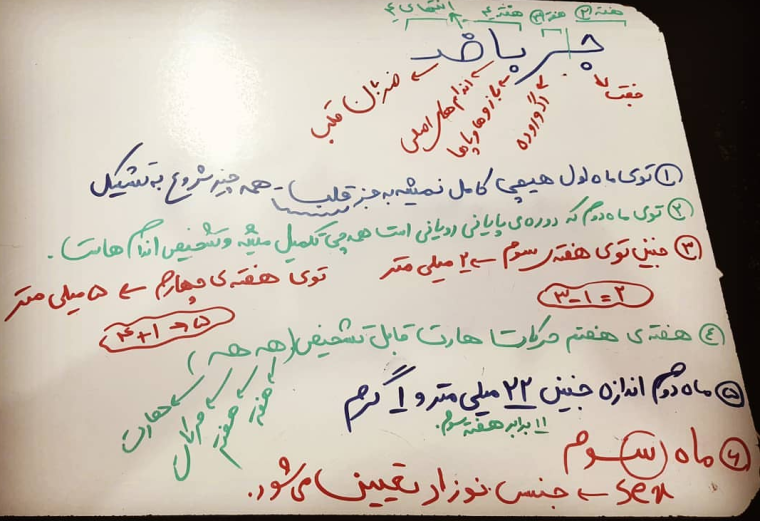 هفته ۲ هفته ۳ هفته ۴ انتهای ۴
جر با ضد
جفت
رگ و روده
بازوها و پاها
اندام های اصلی
ضربان قلب
① توی ماه اول هیچی کامل نمیشه به جز قلب - همه چیز شروع به تشکیل
② توی ماه دوم که دوره ی پایانی رویانی است همه چی تکمیل میشه و تشخیص اندام هاست.
③ جنین توی هفته ی سوم ← ۲ میلی متر توی هفته ی چهارم ← ۵ میلی متر
۳-۱=۲
۴+۱→۵
④ هفته ی هفتم حرکات هارت قابل تشخیص (هه هه)
هفته
هفتم
حرکات
هارت
⑤ ماه دوم اندازه جنین ۲۲ میلی متر و ۱ گرم
۱۱ برابر هفته سوم.
⑥ ماه سوم
sex ← جنس نوزاد تعیین می شود.